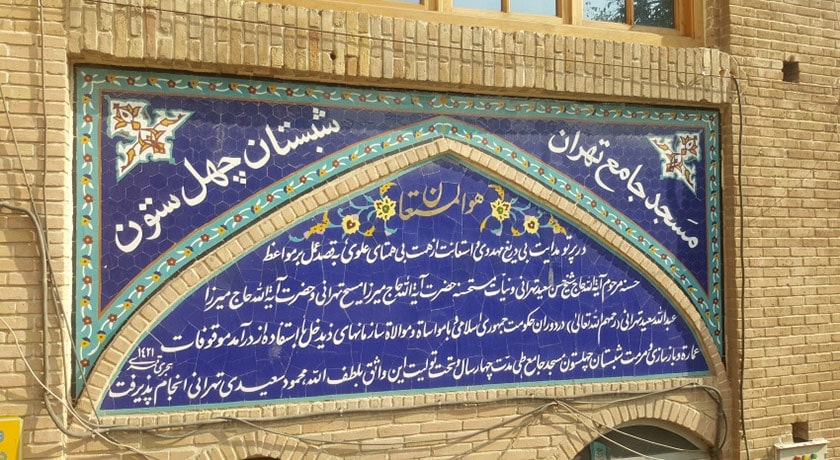 مسجد جامع تهران
شبستان چهل ستون
هو المستعان
در پرتو هدایت بی دریغ مهدوی و استعانت از همت بی همتای علوی به قصد عمل بر مواعظ
حسنه مرحوم آیة الله حاج شیخ حسن سعید تهرانی و نیات مستحسنه حضرت آیة الله حاج میرزا مسیح تهرانی و حضرت آیة الله حاج میرزا
عبدالله سعید تهرانی (رحمهم الله تعالی) در دوران حکومت جمهوری اسلامی با مواساة و موالاة سازمانهای ذیدخل با استفاده از درآمد موقوفات
عمارة و بازسازی و مرمت شبستان چهلستون مسجد جامع طی مدت چهار سال و تحت تولیت این واثق بلطف الله محمود سعیدی تهرانی انجام پذیرفت
۱۴۲۱ هجری قمری